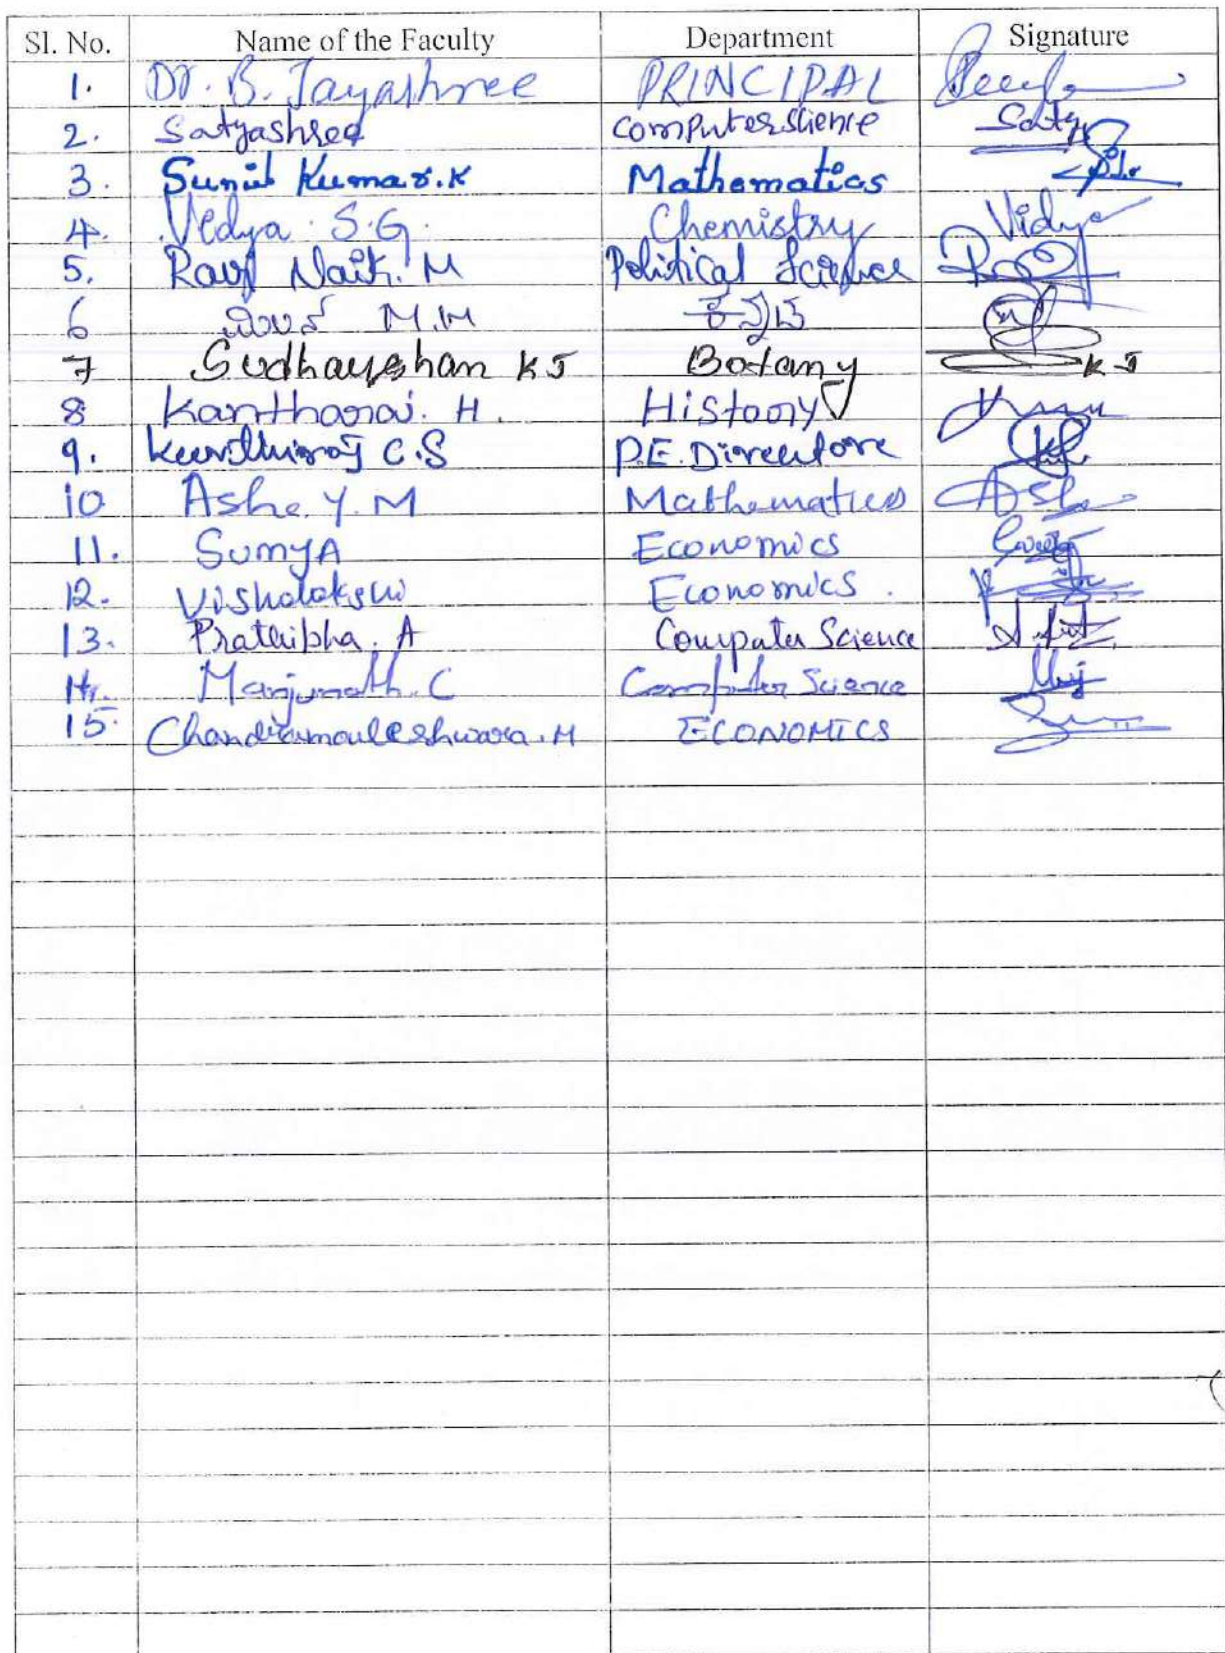 Sl. No. Name of the Faculty Department Signature
1. Dr. B. Jayashree PRINCIPAL
2. Satyashree Computer Science Saty
3. Sunil Kumar.K Mathematics
4. Vidya S.G. Chemistry Vidya
5. Ravi Naik. M Political Science
6 M.M ಕನ್ನಡ
7 Sudharshan K J Botany K J
8 Kantharaj. H. History
9. Keerthiraj C.S P.E. Director
10 Asha. Y. M Mathematics Asha
11. SumyA Economics
12. Vishalakshi Economics.
13. Prathibha. A Computer Science
14. Manjunath. C Computer Science Manj
15. Chandramouleshwara. M ECONOMICS